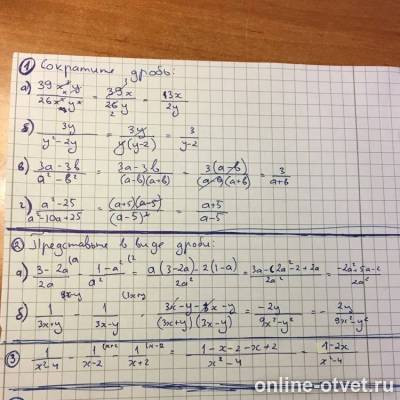 ① Сократите дробь:
а) 39x³y / 26x²y² = 39x / 26y = 13x / 2y
б) 3y / y²-2y = 3y / y(y-2) = 3 / y-2
в) 3a-3b / a²-b² = 3a-3b / (a-b)(a+b) = 3(a-b) / (a-b)(a+b) = 3 / a+b
г) a²-25 / a²-10a+25 = (a+5)(a-5) / (a-5)² = a+5 / a-5
② Представьте в виде дроби:
а) 3-2a / 2a - 1-a² / a² = a(3-2a)-2(1-a) / 2a² = 3a-2a²-2+2a / 2a² = -2a²+5a-2 / 2a²
б) 1 / 3x+y - 1 / 3x-y = 3x-y-3x-y / (3x+y)(3x-y) = -2y / 9x²-y² = - 2y / 9x²-y²
③ 1 / x²-4 - 1 / x-2 - 1 / x+2 = 1-x-2-x+2 / x²-4 = 1-2x / x²-4
online-otvet.ru